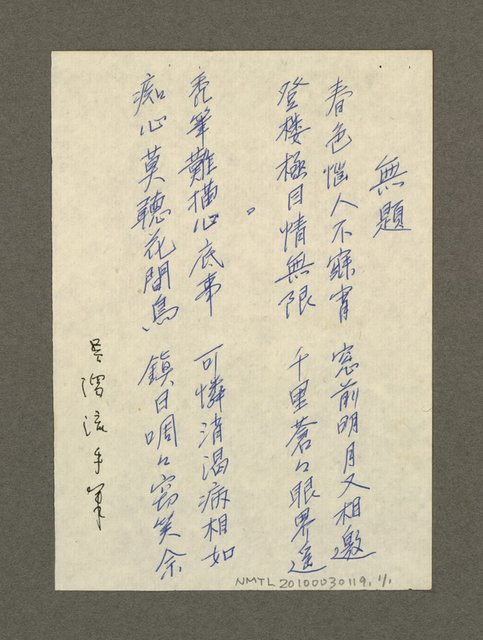 無題
春色惱人不寐宵　窓前明月又相邀
登楼極目情無限　千里蒼々眼界遥
秃筆難描心底事　可憐消渴病相如
痴心莫聽花間鳥　鎮日啁々窃笑余
吳濁流手筆
NMTL20100030119, 1/1